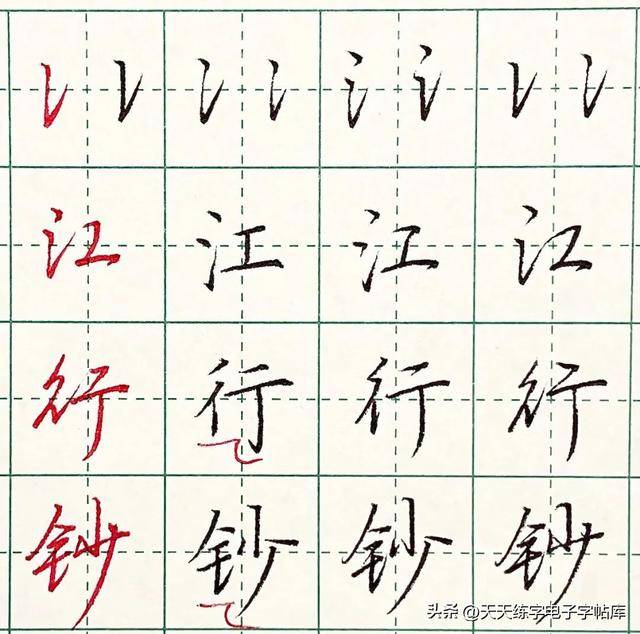 江 江 江 江
行 行 行 行
钞 钞 钞 钞
头条 @天天练字电子字帖库